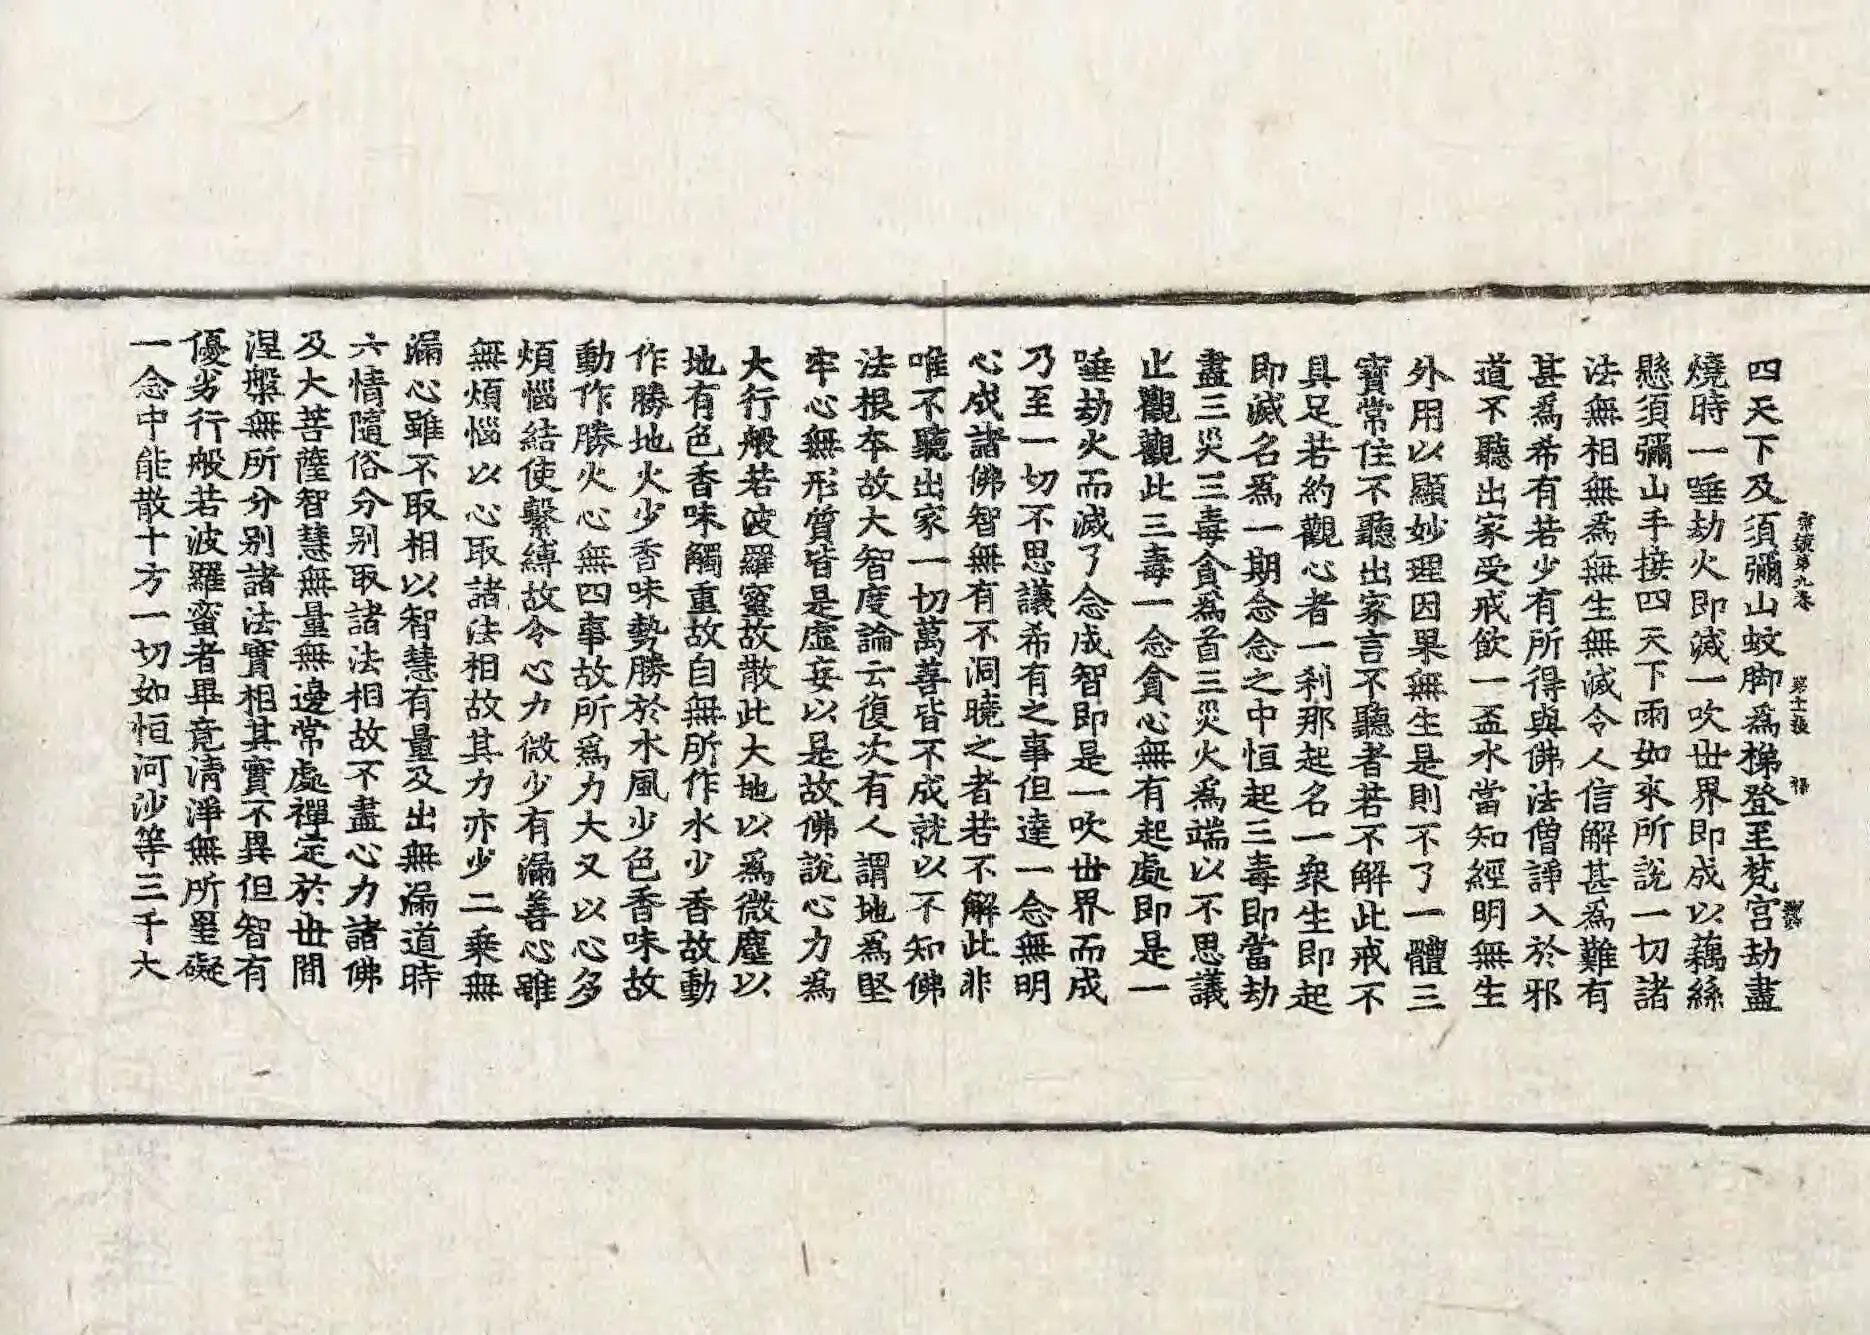 宗鏡第九卷　第十一張　禄
四天下及須彌山蚊脚為梯登至梵宮劫盡
燒時一唾劫火即滅一吹世界即成以藕絲
懸須彌山手接四天下雨如來所說一切諸
法無相無為無生無滅令人信解甚為難有
甚為希有若少有所得與佛法僧諍入於邪
道不聽出家受戒飲一盃水當知經明無生
外用以顯妙理因果無生是則不了一體三
寶常住不聽出家言不聽者若不解此戒不
具足若約觀心者一剎那起名一衆生即起
即滅名為一期念念之中恒起三毒即當劫
盡三災三毒貪為首三災火為端以不思議
止觀觀此三毒一念貪心無有起處即是一
唾劫火而滅了念成智即是一吹世界而成
乃至一切不思議希有之事但達一念無明
心成諸佛智無有不洞曉之者若不解此非
唯不聽出家一切萬善皆不成就以不知佛
法根本故大智度論云復次有人謂地為堅
牢心無形質皆是虛妄以是故佛說心力為
大行般若波羅蜜故散此大地以為微塵以
地有色香味觸重故自無所作水少香故動
作勝地火少香味勢勝於水風少色香味故
動作勝火心無四事故所為力大又以心多
煩惱結使繫縛故令心力微少有漏善心雖
無煩惱以心取諸法相故其力亦少二乘無
漏心雖不取相以智慧有量及出無漏道時
六情隨俗分别取諸法相故不盡心力諸佛
及大菩薩智慧無量無邊常處禪定於世間
涅槃無所分别諸法實相其實不異但智有
優劣行般若波羅蜜者畢竟清淨無所罣礙
一念中能散十方一切如恒河沙等三千大